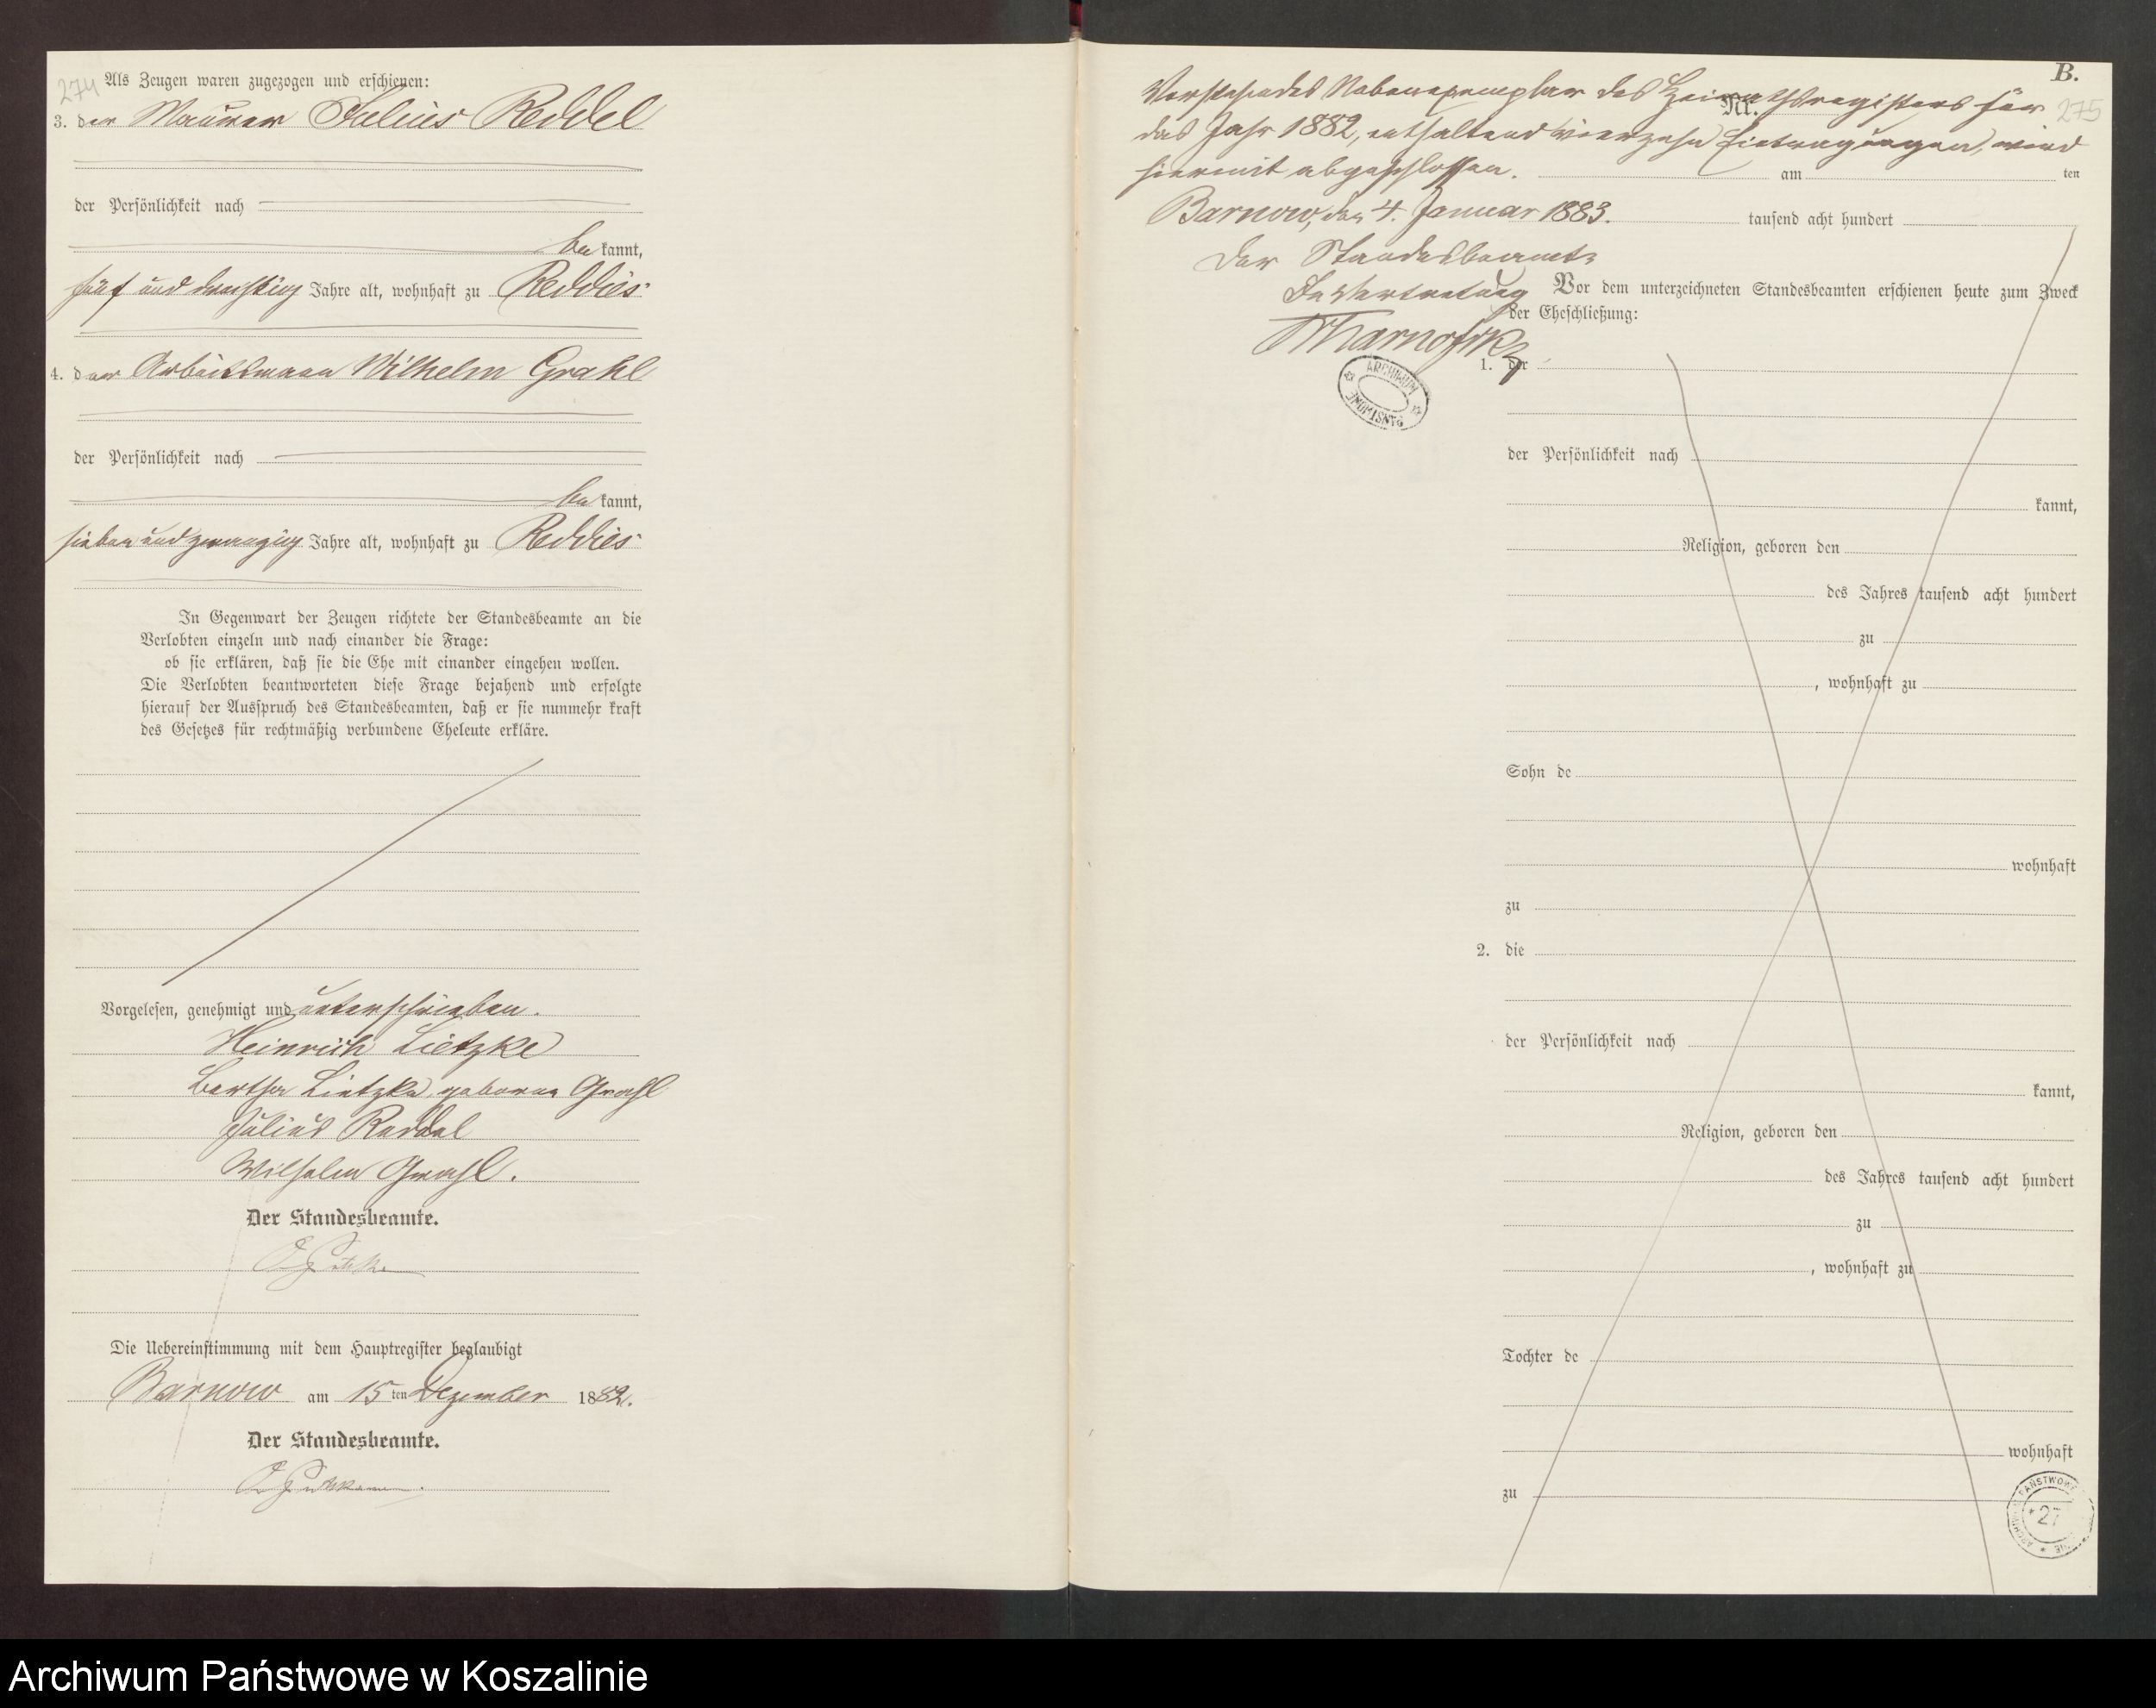 274
Als Zeugen waren zugezogen und erschienen:
3. der Maurer Julius Reddel
der Persönlichkeit nach
be kannt,
fünf und dreißig Jahre alt, wohnhaft zu Reddies
4. der Arbeitsmann Wilhelm Grahl
der Persönlichkeit nach
be kannt,
sieben und zwanzig Jahre alt, wohnhaft zu Reddies
In Gegenwart der Zeugen richtete der Standesbeamte an die
Verlobten einzeln und nach einander die Frage:
ob sie erklären, daß sie die Ehe mit einander eingehen wollen.
Die Verlobten beantworteten diese Frage bejahend und erfolgte
hierauf der Ausspruch des Standesbeamten, daß er sie nunmehr kraft
des Gesetzes für rechtmäßig verbundene Eheleute erkläre.
Vorgelesen, genehmigt und unterschrieben.
Heinrich Lietzke
Bertha Lietzke, geborne Grahl
Julius Reddel
Wilhelm Grahl.
Der Standesbeamte.
Die Uebereinstimmung mit dem Hauptregister beglaubigt
Barnow am 15 ten Dezember 1882.
Der Standesbeamte.
B.
Nr.
275
Vorstehendes Nebenexemplar des Heirathsregisters für
das Jahr 1882, enthaltend vierzehn Eintragungen, wird
hiermit abgeschlossen.
am ten
Barnow, den 4. Januar 1883.
tausend acht hundert
Der Standesbeamte
In Vertretung
Vor dem unterzeichneten Standesbeamten erschienen heute zum Zweck
der Eheschließung:
1. der
ARCHIWUM PAŃSTWOWE
der Persönlichkeit nach
kannt,
Religion, geboren den
des Jahres tausend acht hundert
zu
, wohnhaft zu
Sohn de
wohnhaft
zu
2. die
der Persönlichkeit nach
kannt,
Religion, geboren den
des Jahres tausend acht hundert
zu
, wohnhaft zu
Tochter de
wohnhaft
zu
27
Archiwum Państwowe w Koszalinie